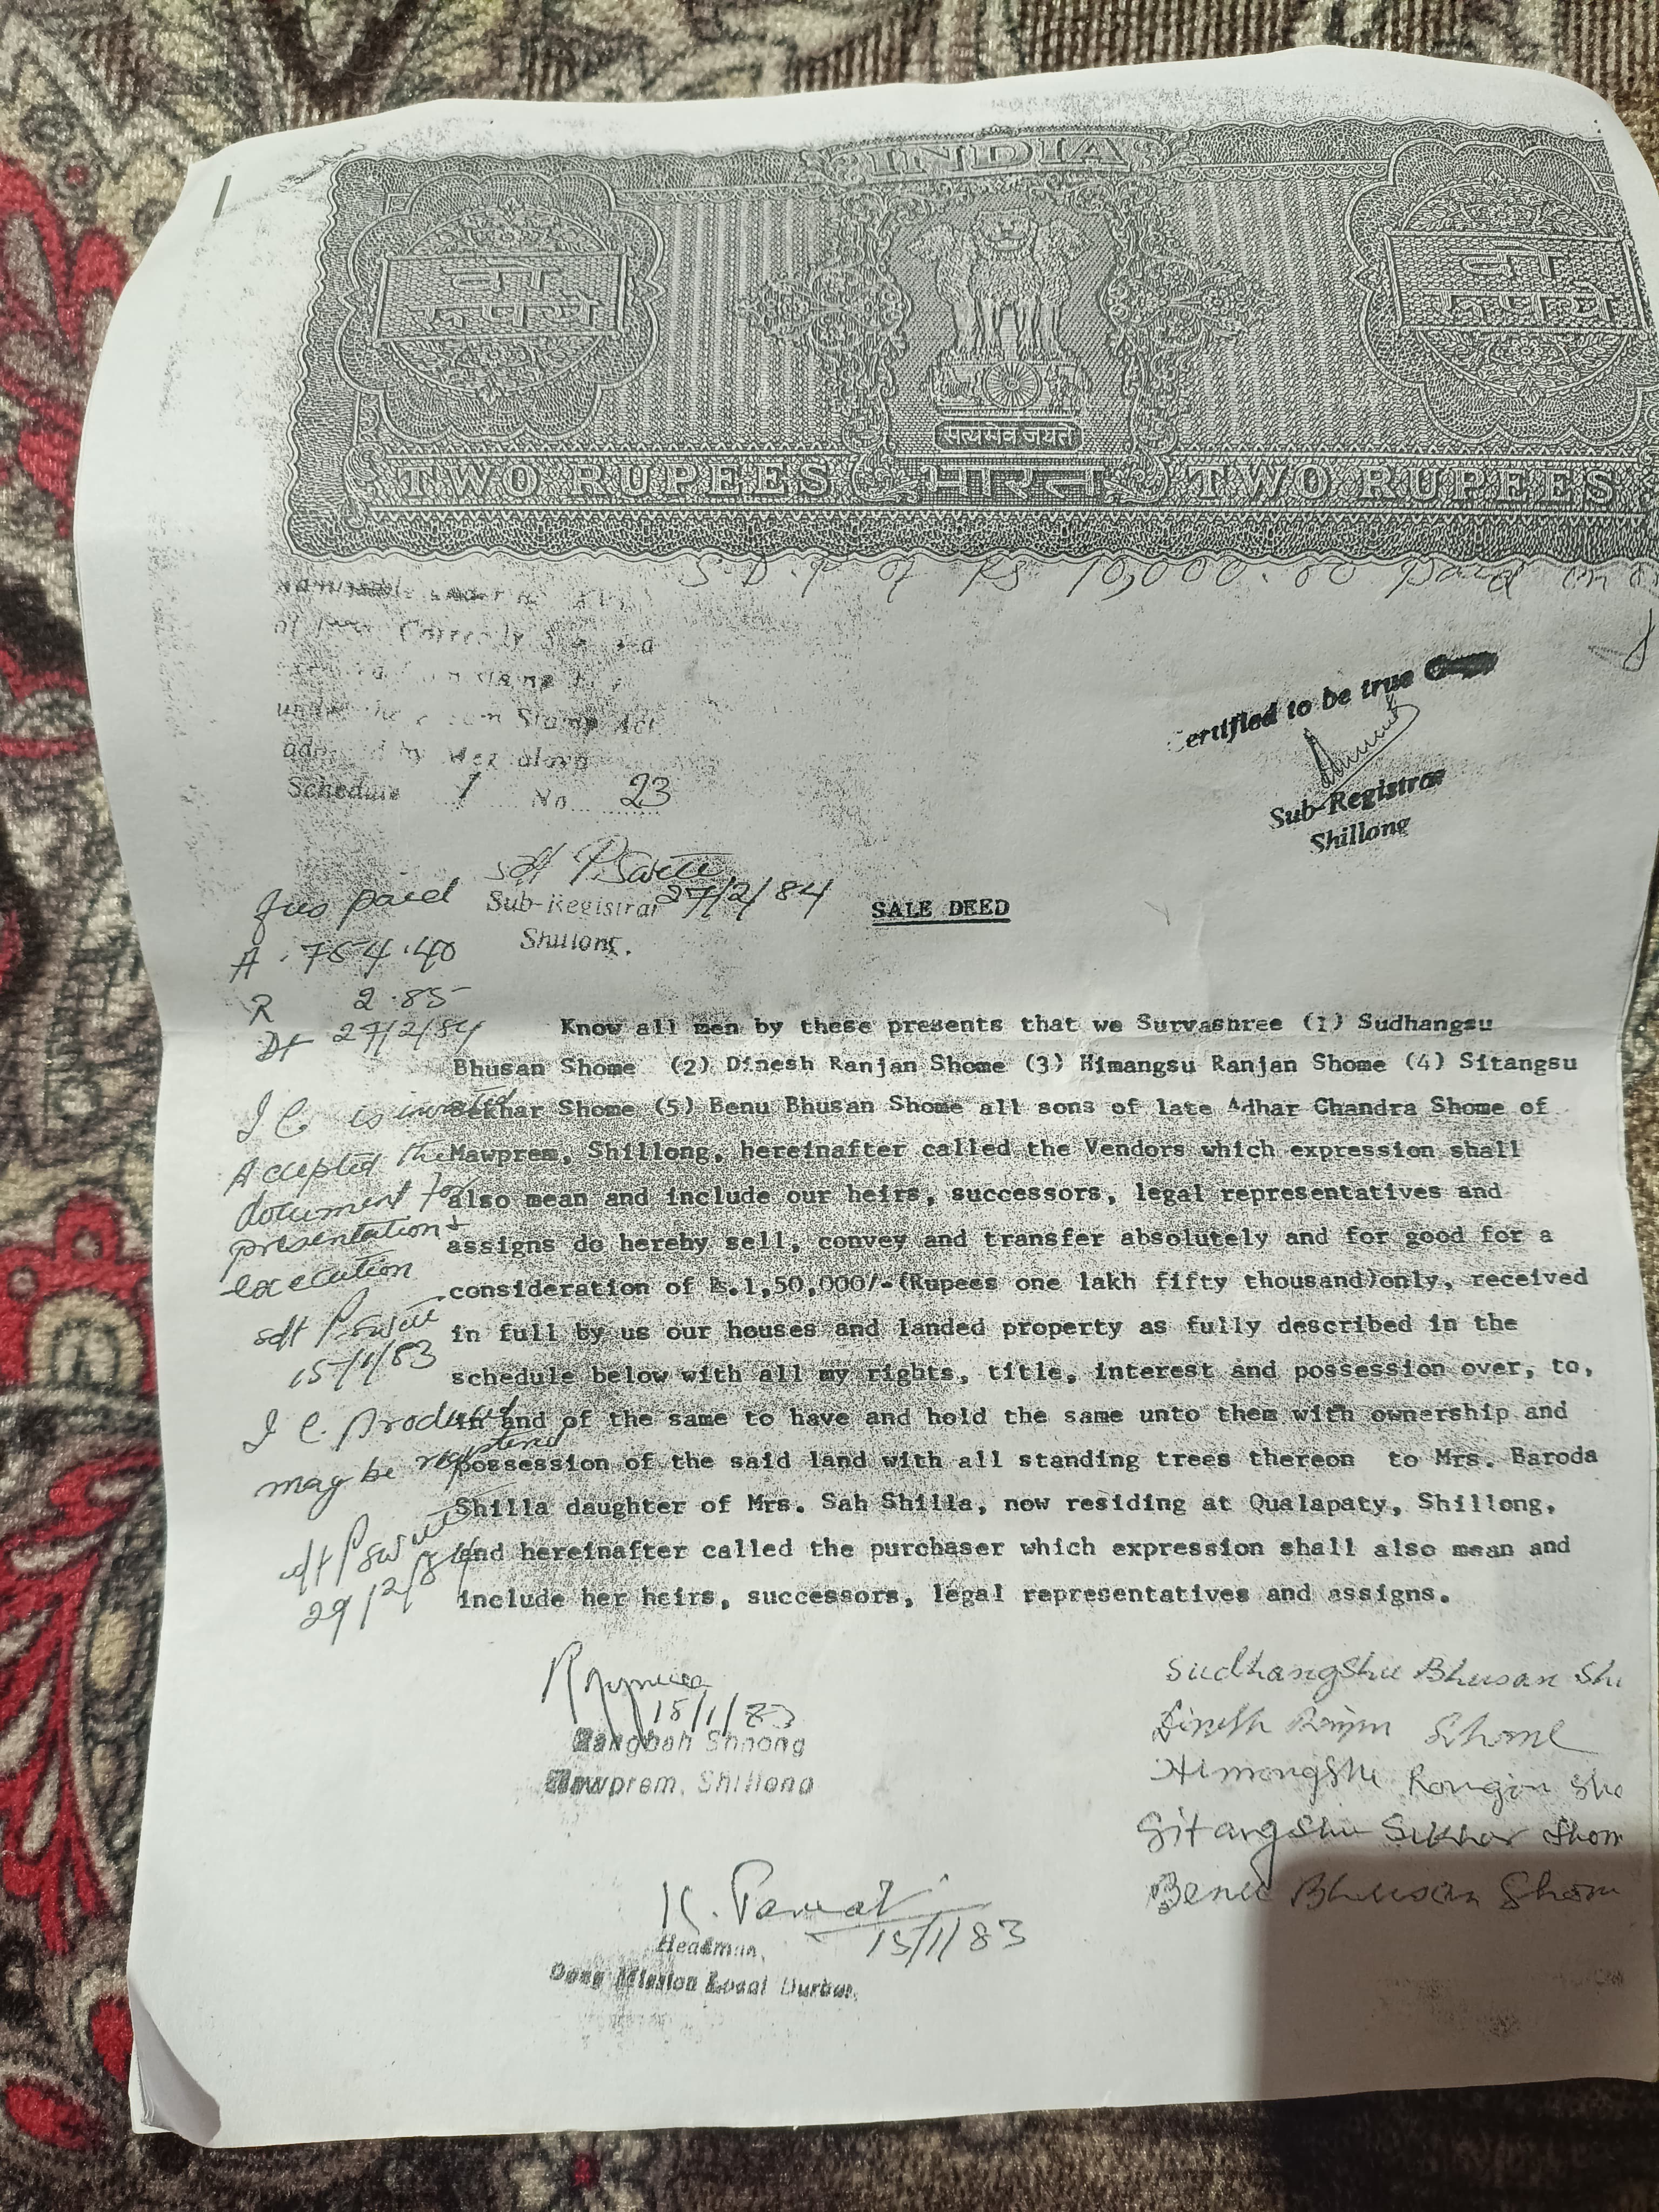 INDIA
दो
रूपये
दो
रूपये
सत्यमेव जयते
TWO RUPEES भारत TWO RUPEES
S.D.P of Rs 10,000.00 paid on
of Correctly
under the Stamp Act
Schedule 1 No 23
ertified to be true
Sub-Registrar
Shillong
Sub-Registrar 27/2/84
Shillong.
SALE DEED
fees paid
A. 764.40
R 2.85
Dt 27/2/84
Know all men by these presents that we Survashree (1) Sudhangsu
Bhusan Shome (2) Dinesh Ranjan Shome (3) Himangsu Ranjan Shome (4) Sitangsu
Sekhar Shome (5) Benu Bhusan Shome all sons of late Adhar Chandra Shome of
Mawprem, Shillong, hereinafter called the Vendors which expression shall
also mean and include our heirs, successors, legal representatives and
assigns do hereby sell, convey and transfer absolutely and for good for a
consideration of Rs.1,50,000/-(Rupees one lakh fifty thousand)only, received
in full by us our houses and landed property as fully described in the
schedule below with all my rights, title, interest and possession over, to,
in and of the same to have and hold the same unto them with ownership and
possession of the said land with all standing trees thereon to Mrs. Baroda
Shilla daughter of Mrs. Sah Shilla, now residing at Qualapaty, Shillong,
and hereinafter called the purchaser which expression shall also mean and
include her heirs, successors, legal representatives and assigns.
I C. is
Accepted the
document for
presentation &
execution
15/1/83
I C. Produced
may be
29/2/84
15/1/83
Rangbah Shnong
Mawprem, Shillong
K.
15/1/83
Headman,
Mission Local Durbar.
Sudhangshu Bhusan Sho
Dinesh Ranjan Shome
Himangshu Ranjan Sho
Sitangshu Sekhar Shom
Benu Bhusan Shom